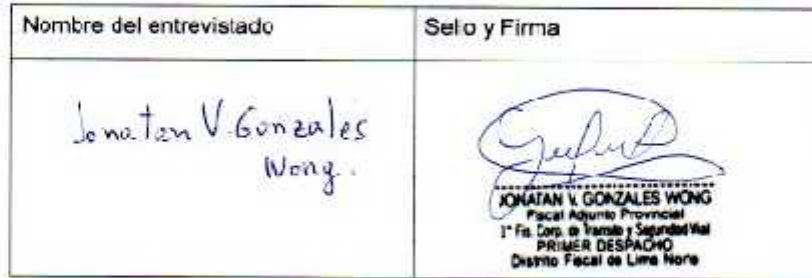 Nombre del entrevistado
Sello y Firma
Jonatan V. Gonzales
Wong.
JONATAN V. GONZALES WONG
Fiscal Adjunto Provincial
1° Fis. Corp. de Transito y Seguridad Vial
PRIMER DESPACHO
Distrito Fiscal de Lima Norte